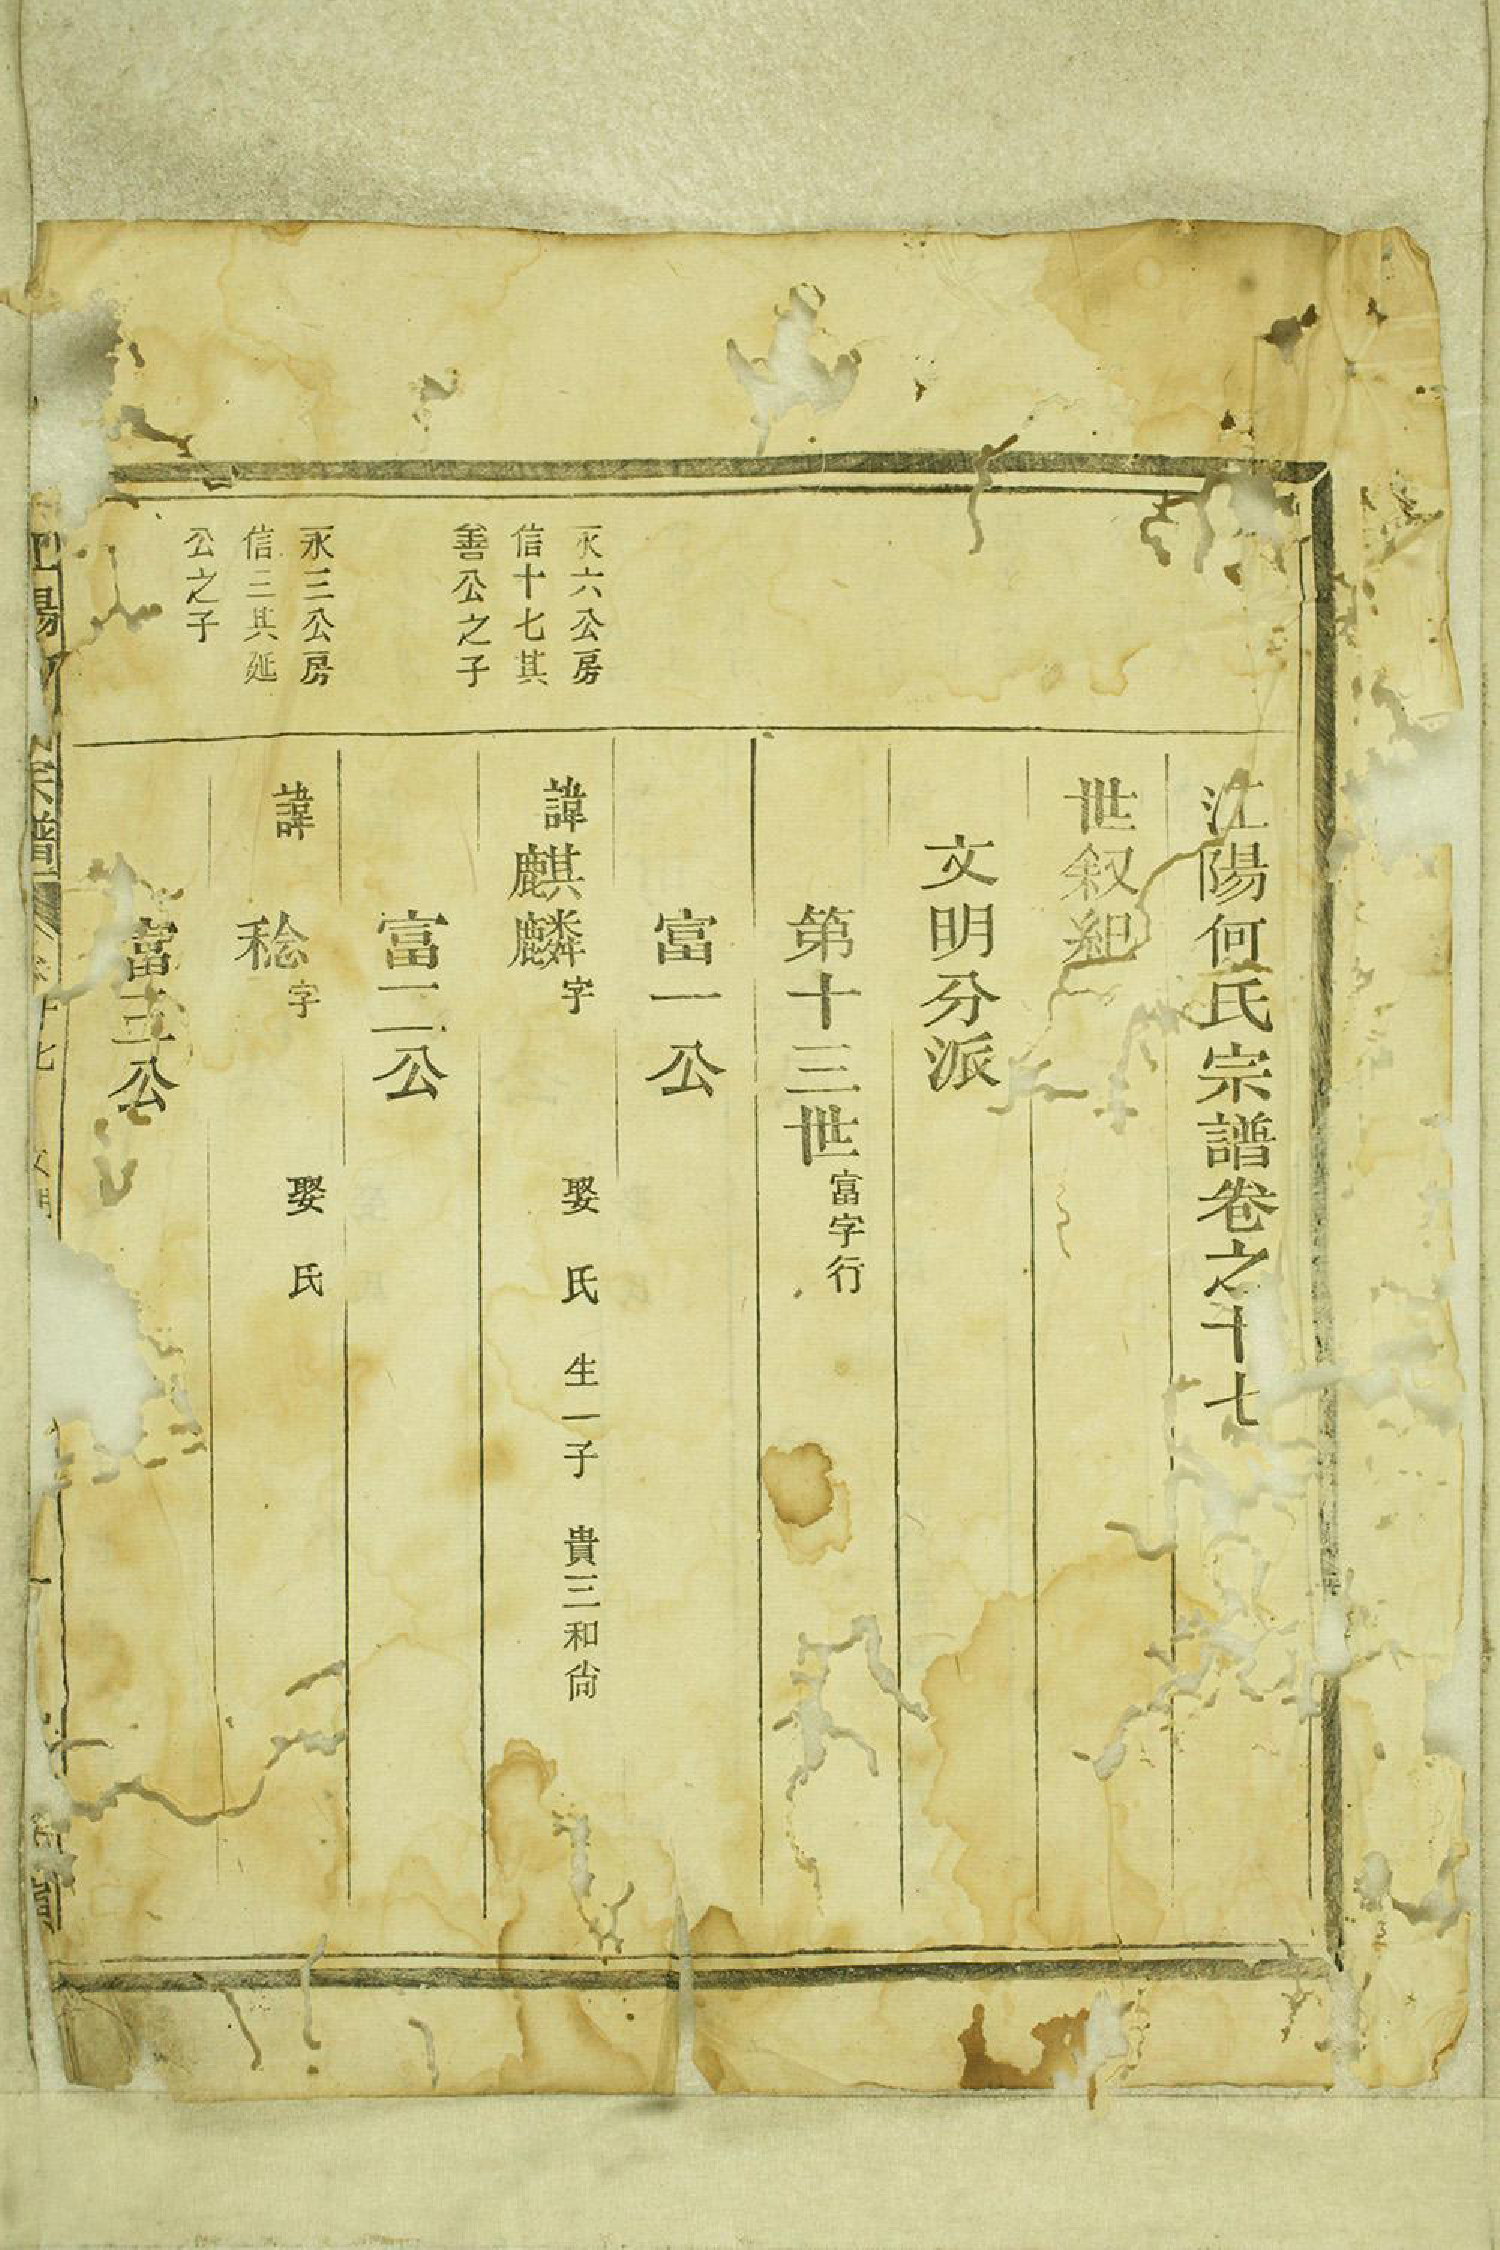 江陽何氏宗譜卷之十七
世叙紀
文明分派
第十三世富字行
永六公房
信十七其
善公之子
富一公
諱麒麟字 娶 氏 生一子 貴三和尙
永三公房
信三其延
公之子
富二公
諱 稔字 娶 氏
富三公
陽 宗譜